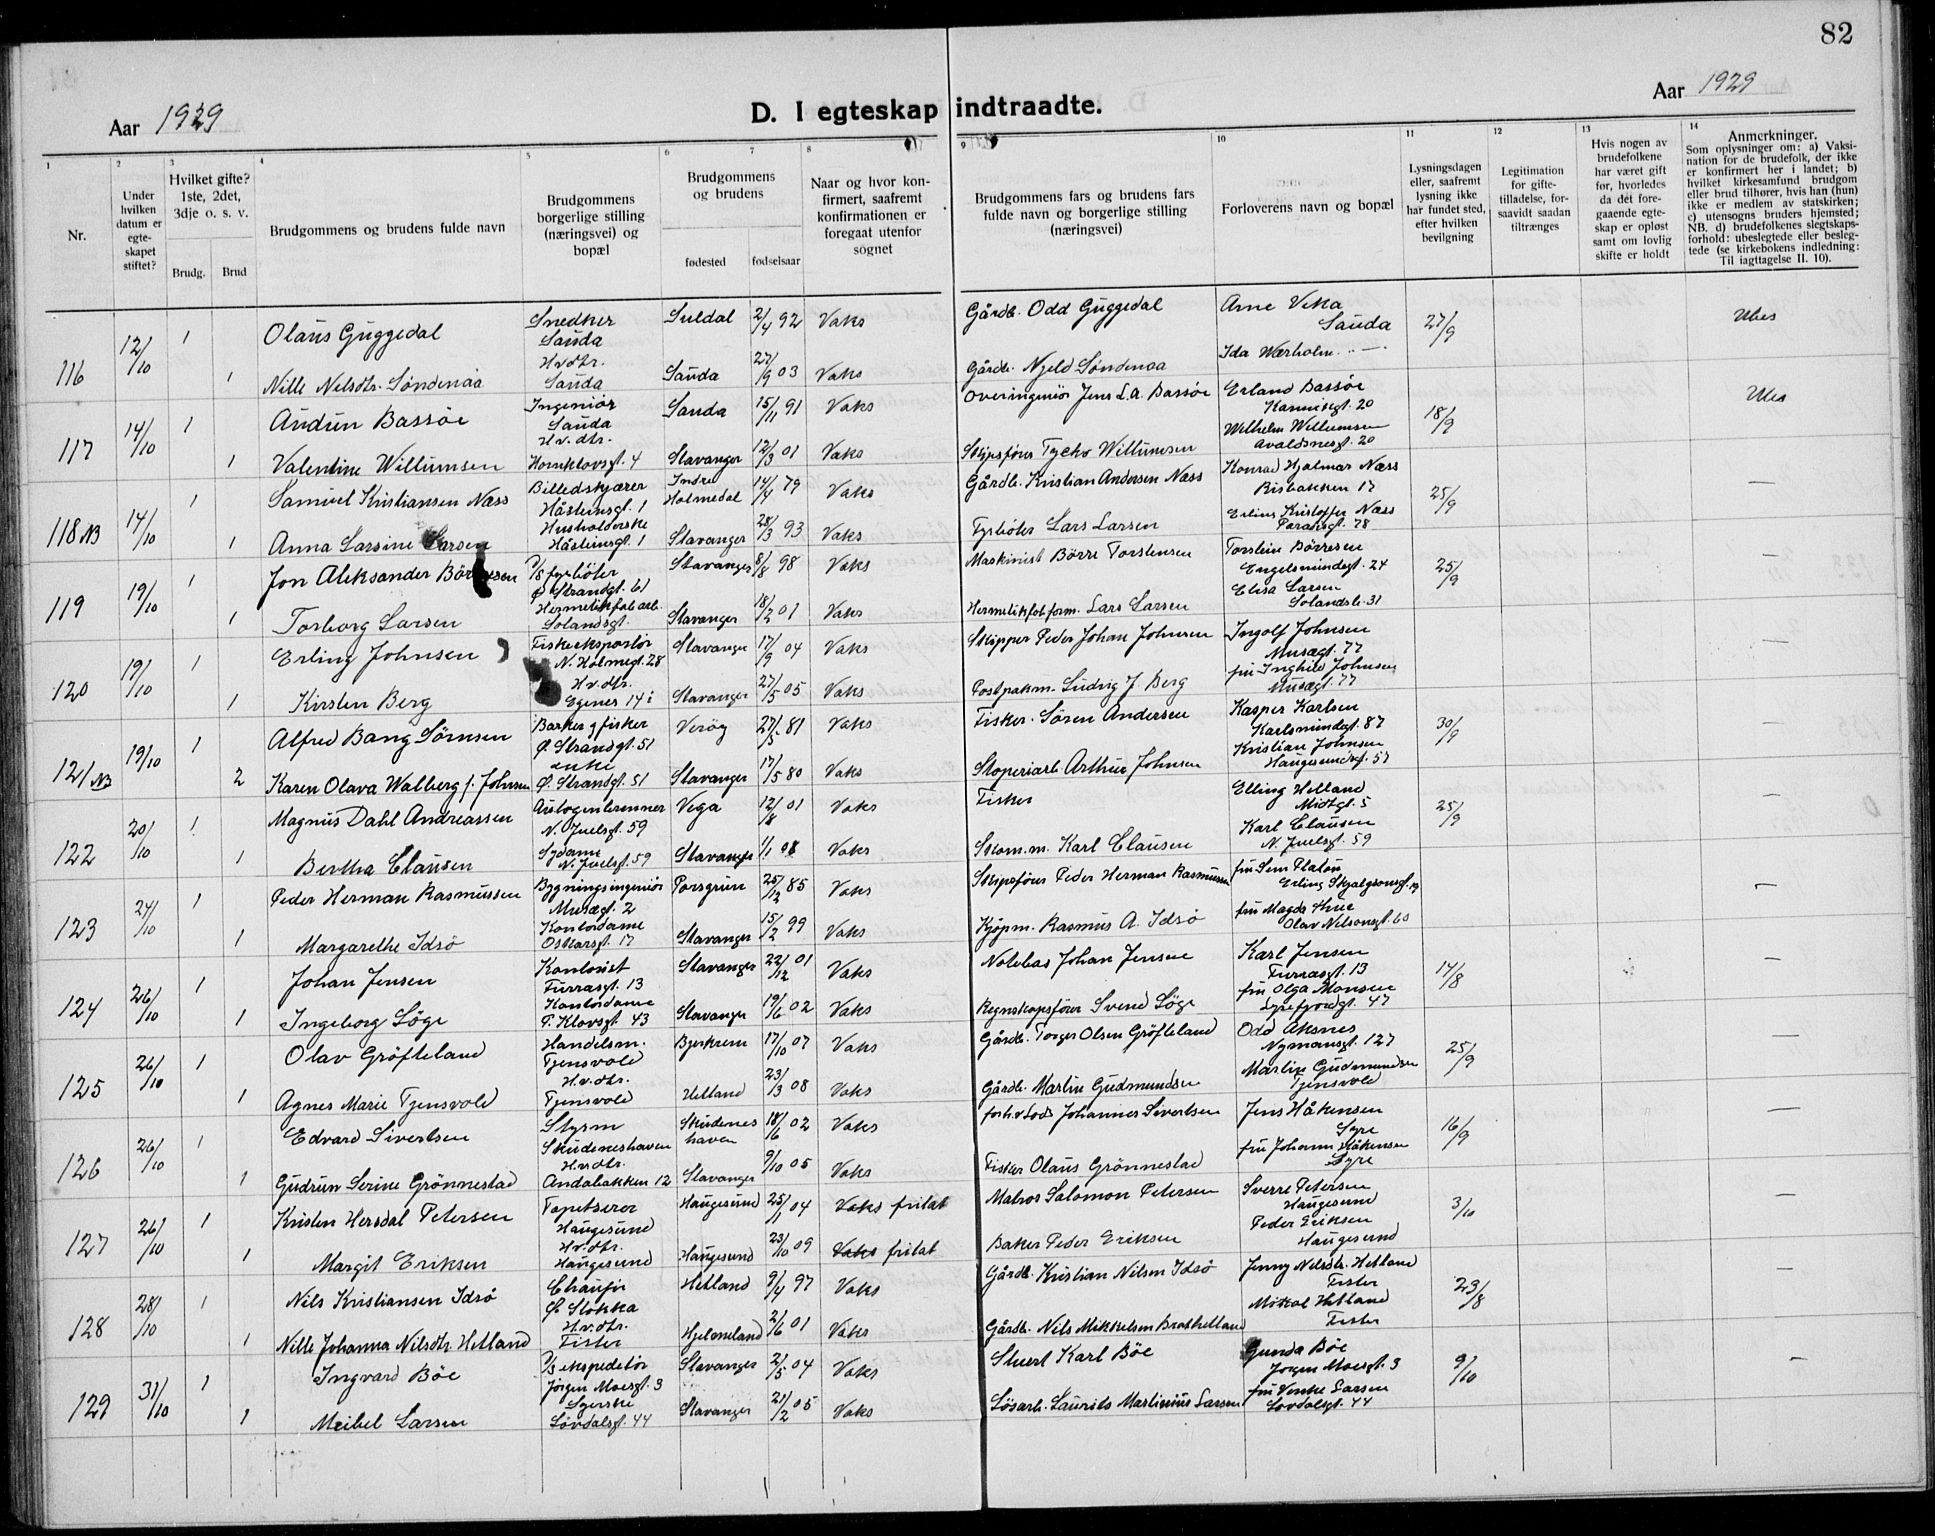 82
Aar 1929
D. I egteskap indtraadte.
Aar 1929
1 2 3 4 5 6 7 8 9 10 11 12 13 14
Nr.
Under hvilken datum er egteskapet stiftet?
Hvilket gifte? 1ste, 2det, 3dje o. s. v.
Brudg. Brud
Brudgommens og brudens fulde navn
Brudgommens borgerlige stilling (næringsvei) og bopæl
Brudgommens og brudens
fødested fødselsaar
Naar og hvor konfirmert, saafremt konfirmationen er foregaat utenfor sognet
Brudgommens fars og brudens fars fulde navn og borgerlige stilling (næringsvei)
Forloverens navn og bopæl
Lysningsdagen eller, saafremt lysning ikke har fundet sted, efter hvilken bevilgning
Legitimation for giftetilladelse, forsaavidt saadan tiltrænges
Hvis nogen av brudefolkene har været gift før, hvorledes da det foregaaende egteskap er opløst samt om lovlig skifte er holdt
Anmerkninger. Som oplysninger om: a) Vaksination for de brudefolk, der ikke er konfirmert her i landet; b) hvilket kirkesamfund brudgom eller brud tilhører, hvis han (hun) ikke er medlem av statskirken; c) utensogns bruders hjemsted; NB. d) brudefolkenes slegtskapsforhold: ubeslegtede eller beslegtede (se kirkebokens indledning: Til iagttagelse II. 10).
116 12/10 1 Olaus Guggedal Snedker Sauda Suldal 2/4 92 Vaks Gårdb. Odd Guggedal Arne Veka Sauda 27/9 Ubes
1 Nille Nilsdtr. Søndenaa Hv.dtr. Sauda Sauda 27/9 03 Vaks Gårdb. Njeld Søndenaa Ida Wærholm
117 14/10 1 Audun Bassøe Ingeniør Sauda Sauda 15/11 91 Vaks Overingeniør Jens L.A. Bassøe Erland Bassøe Kannikgt. 20 18/9 Ubes
1 Valentine Willumsen Hv.dtr. Hornklovsgt. 4 Stavanger 12/3 01 Vaks Skipsfører Tycho Willumsen Wilhelm Willumsen Avaldsnesgt. 20
118 NB 14/10 1 Samuel Kristiansen Næss Billedskjærer Håsteinsgt. 1 Indre Holmedal 14/4 79 Vaks Gårdb. Kristian Andersen Næss Konrad Hjalmar Næss Risbakken 17 25/9 —
1 Anna Larsine Larsen Husholderske Håsteinsgt. 1 Stavanger 28/3 93 Vaks Fyrbøter Lars Larsen Erling Kristoffer Næss 78
119 19/10 1 Jon Aleksander Börresen D/S fyrbøter Ø Strandgt. 61 Stavanger 8/8 98 Vaks Maskinist Börre Torstensen Torstein Börresen Engelsmindegt. 24 25/9 —
1 Torborg Larsen Hermetikfab.arb. Solandsgt. Stavanger 18/2 01 Vaks Hermetikfab.form. Lars Larsen Elisa Larsen Solandsb. 31
120 19/10 1 Erling Johnsen Fiskeeksportør N. Holmegt. 28 Stavanger 17/9 04 Vaks Skipper Peder Johan Johnsen Ingolf Johnsen Musegt. 77 —
1 Kirsten Berg Hv.dtr. Egenes 14 Stavanger 27/5 05 Vaks Postpakm. Ludvig J. Berg fru Inghild Johnsen Musegt. 77
121 NB 19/10 1 Alfred Bang Sörnsen Barker og fisker Ø. Strandgt. 51 Verøy 27/5 81 Vaks Fisker Sören Andersen Kasper Karlsen Karlsmindegt. 87 30/9 —
2 Karen Olava Walberg f. Johnsen enke Ø. Strandgt. 51 Stavanger 17/5 80 Vaks Støperiarb. Arthur Johnsen Kristian Johnsen Haugesundsgt. 57
122 20/10 1 Magnus Dahl Andreassen Autogenbrenner N. Juelsgt. 59 Vega 12/8 01 Vaks Fisker Elling Helland Midtgt. 5 25/9 —
1 Bertha Clausen Sydame N. Juelsgt. 59 Stavanger 1/1 08 Vaks Skom.m. Karl Clausen Karl Clausen N. Juelsgt. 59
123 24/10 1 Peder Herman Rasmussen Bygningsingeniør Musegt. 2 Porsgrun 25/12 85 Vaks Skipsfører Peder Herman Rasmussen fru Erling Skjalgsonsgt. —
1 Margarethe Idsö Kontordame Oskarsgt. 17 Stavanger 15/2 99 Vaks Kjøpm. Rasmus A. Idsø fru Magda Thue Olav Nilsonsgt. 60
124 26/10 1 Johan Jensen Kontorist Furrasgt. 13 Stavanger 22/12 01 Vaks Notebas Johan Jensen Karl Jensen Furrasgt. 13 14/8 —
1 Ingeborg Söge Kontordame T. Klovsgt. 43 Stavanger 19/6 02 Vaks Regnskapsfører Svend Söge fru Olga Monsen Lysefjordgt. 47
125 26/10 1 Olav Gröfteland Handelsm. Tjensvold Bjerkrem 17/10 07 Vaks Gårdb. Torger Olsen Gröfteland Odd Aksnes Nymansgt. 127 25/9 —
1 Agnes Marie Tjensvold Hv.dtr. Tjensvold Hetland 23/3 08 Vaks Gårdb. Martin Gudmundsen Martin Gudmundsen Tjensvold
126 26/10 1 Edvard Sivertsen Styrm Skudeneshavn Skudeneshaven 18/6 02 Vaks forh.v. Lods Johannes Sivertsen Jens Håkensen Syre 16/9 —
1 Gudrun Serine Grönnestad Hv.dtr. Andabakken 12 Stavanger 9/10 05 Vaks Fisker Olaus Grönnestad fru Johann Håkensen Syre
127 26/10 1 Kristen Hersdal Petersen Tapetserer Haugesund Haugesund 25/1 04 Vaks fritat Matros Salomon Petersen Sverre Petersen Haugesund 3/10 —
1 Margit Eriksen Hv.dtr. Haugesund Haugesund 23/10 09 Vaks fritat Baker Peder Eriksen Peder Eriksen Haugesund
128 28/10 1 Nils Kristiansen Idsö Chauför Ø Stokka Hetland 9/4 97 Vaks Gårdb. Kristian Nilsen Idsö Jenny Nilsdtr. Hetland Fister 23/8 —
1 Nille Johanna Nilsdtr. Hetland Hv.dtr. Fister Hjelmeland 2/6 01 Vaks Gårdb. Nils Mikkelsen Brathetland Mikal Hetland Fister
129 31/10 1 Ingvard Böe D/S ekspeditør Jörgen Moesgt. 3 Stavanger 2/5 04 Vaks Stuert Karl Böe Gunda Böe Jörgen Moesgt. 3 9/10 —
1 Meibel Larsen Syerske Lövdalsgt. 44 Stavanger 21/2 05 Vaks Løsarb. Laurits Martinius Larsen fru Venke Larsen Lövdalsgt. 44